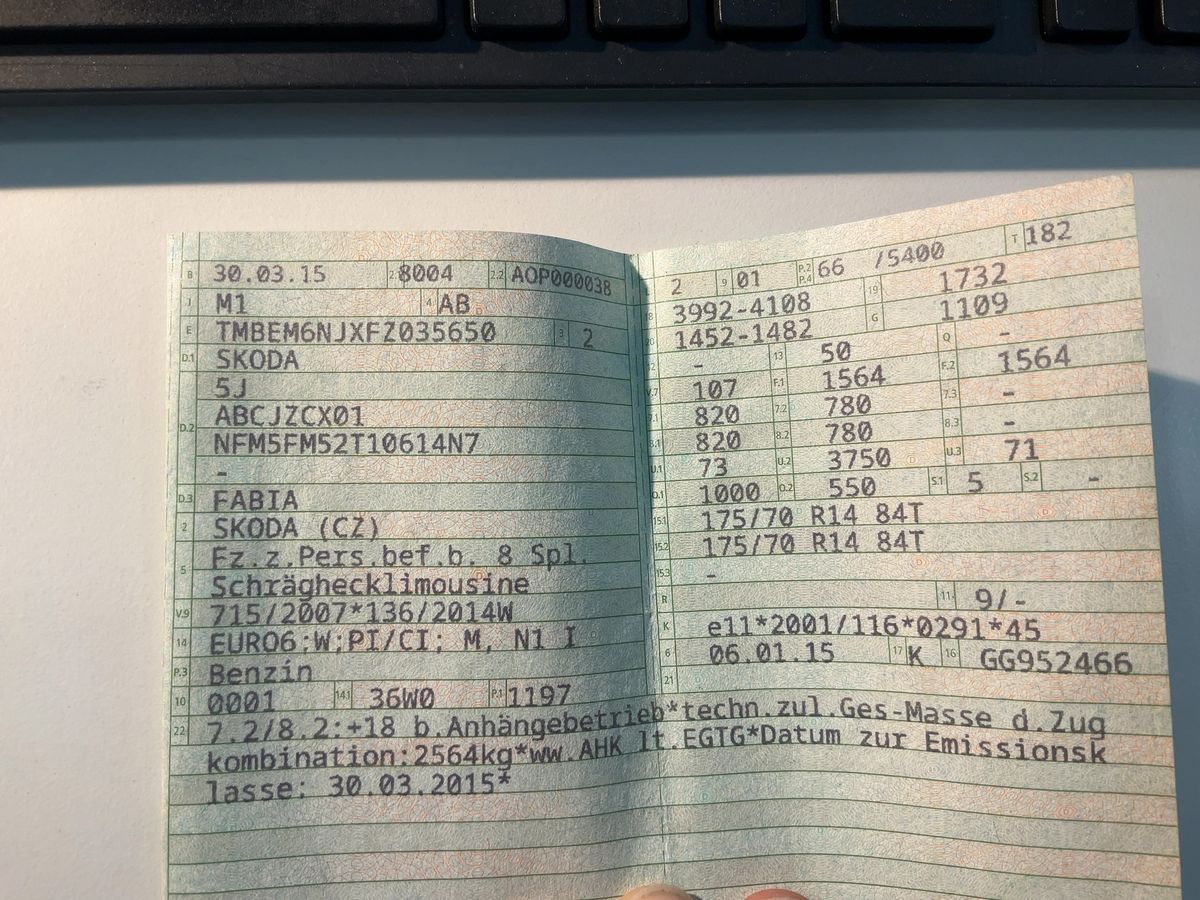 B 30.03.15 2.1 8004 2.2 AOP000038
J M1 4 AB
E TMBEM6NJXFZ035650 3 2
D.1 SKODA
5J
D.2 ABCJZCX01
NFM5FM52T10614N7
-
D.3 FABIA
2 SKODA (CZ)
5 Fz.z.Pers.bef.b. 8 Spl.
Schräghecklimousine
V.9 715/2007*136/2014W
14 EURO6;W;PI/CI; M, N1 I
P.3 Benzin
10 0001 14.1 36W0 P.1 1197
2 9 01 P.2 P.4 66 /5400 T 182
18 3992-4108 19 1732
20 1452-1482 G 1109
12 - 13 50 Q -
V.7 107 F.1 1564 F.2 1564
7.1 820 7.2 780 7.3 -
8.1 820 8.2 780 8.3 -
U.1 73 U.2 3750 U.3 71
O.1 1000 O.2 550 S.1 5 S.2 -
15.1 175/70 R14 84T
15.2 175/70 R14 84T
15.3 -
R 11 9/-
K e11*2001/116*0291*45
6 06.01.15 17 K 16 GG952466
21
22 7.2/8.2:+18 b.Anhängebetrieb*techn.zul.Ges-Masse d.Zug
kombination:2564kg*ww.AHK lt.EGTG*Datum zur Emissionsk
lasse: 30.03.2015*